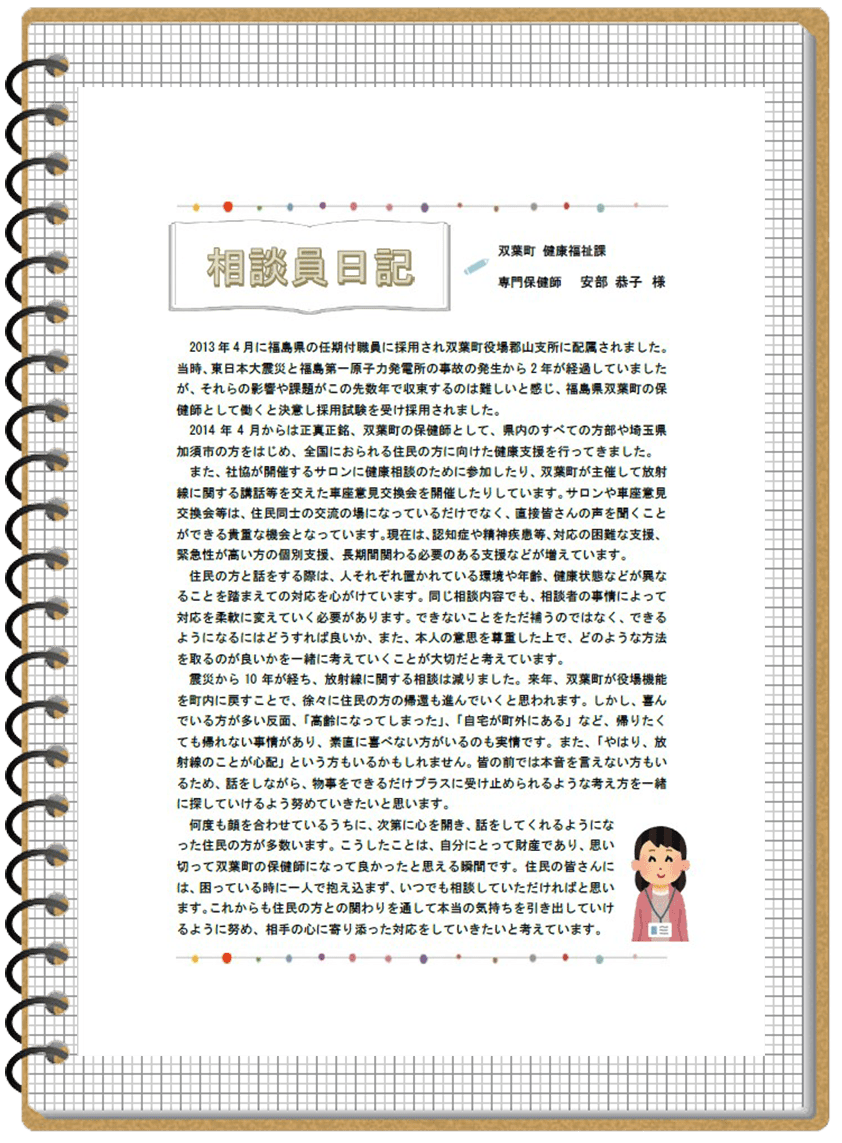 相談員日記
双葉町 健康福祉課
専門保健師 安部 恭子 様
2013年4月に福島県の任期付職員に採用され双葉町役場郡山支所に配属されました。
当時、東日本大震災と福島第一原子力発電所の事故の発生から2年が経過していました
が、それらの影響や課題がこの先数年で収束するのは難しいと感じ、福島県双葉町の保
健師として働くと決意し採用試験を受け採用されました。
2014年4月からは正真正銘、双葉町の保健師として、県内のすべての方部や埼玉県
加須市の方をはじめ、全国におられる住民の方に向けた健康支援を行ってきました。
また、社協が開催するサロンに健康相談のために参加したり、双葉町が主催して放射
線に関する講話等を交えた車座意見交換会を開催したりしています。サロンや車座意見
交換会等は、住民同士の交流の場になっているだけでなく、直接皆さんの声を聞くこと
ができる貴重な機会となっています。現在は、認知症や精神疾患等、対応の困難な支援、
緊急性が高い方の個別支援、長期間関わる必要のある支援などが増えています。
住民の方と話をする際は、人それぞれ置かれている環境や年齢、健康状態などが異な
ることを踏まえての対応を心がけています。同じ相談内容でも、相談者の事情によって
対応を柔軟に変えていく必要があります。できないことをただ補うのではなく、できる
ようになるにはどうすれば良いか、また、本人の意思を尊重した上で、どのような方法
を取るのが良いかを一緒に考えていくことが大切だと考えています。
震災から10年が経ち、放射線に関する相談は減りました。来年、双葉町が役場機能
を町内に戻すことで、徐々に住民の方の帰還も進んでいくと思われます。しかし、喜ん
でいる方が多い反面、「高齢になってしまった」、「自宅が町外にある」など、帰りたく
ても帰れない事情があり、素直に喜べない方がいるのも実情です。また、「やはり、放
射線のことが心配」という方もいるかもしれません。皆の前では本音を言えない方もい
るため、話をしながら、物事をできるだけプラスに受け止められるような考え方を一緒
に探していけるよう努めていきたいと思います。
何度も顔を合わせているうちに、次第に心を開き、話をしてくれるようにな
った住民の方が多数います。こうしたことは、自分にとって財産であり、思い
切って双葉町の保健師になって良かったと思える瞬間です。住民の皆さんに
は、困っている時に一人で抱え込まず、いつでも相談していただければと思い
ます。これからも住民の方との関わりを通して本当の気持ちを引き出していけ
るように努め、相手の心に寄り添った対応をしていきたいと考えています。